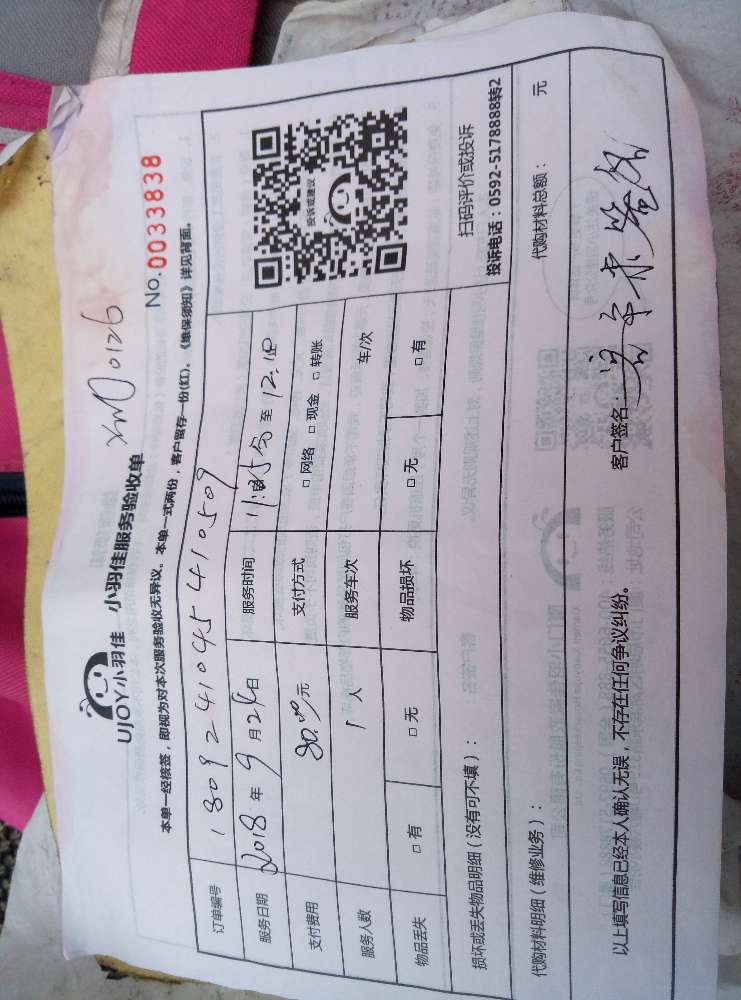 UJOY小羽佳 小羽佳服务验收单 XMD0126
No.0033838
本单一经核签，即视为对本次服务验收无异议。本单一式两份，客户留存一份(红)。《维保须知》详见背面。
订单编号 1809241045410509
服务日期 2018年9月24日 服务时间 至12:10
支付费用 80.00元 支付方式 □网络 □现金 □转账
服务人数 1人 服务车次 车/次
物品丢失 □有 □无 物品损坏 □无 □有
投诉或建议
扫码评价或投诉
投诉电话：0592-5178888转2
损坏或丢失物品明细（没有可不填）：
代购材料明细（维修业务）： 代购材料总额： 元
以上填写信息已经本人确认无误，不存在任何争议纠纷。 客户签名：